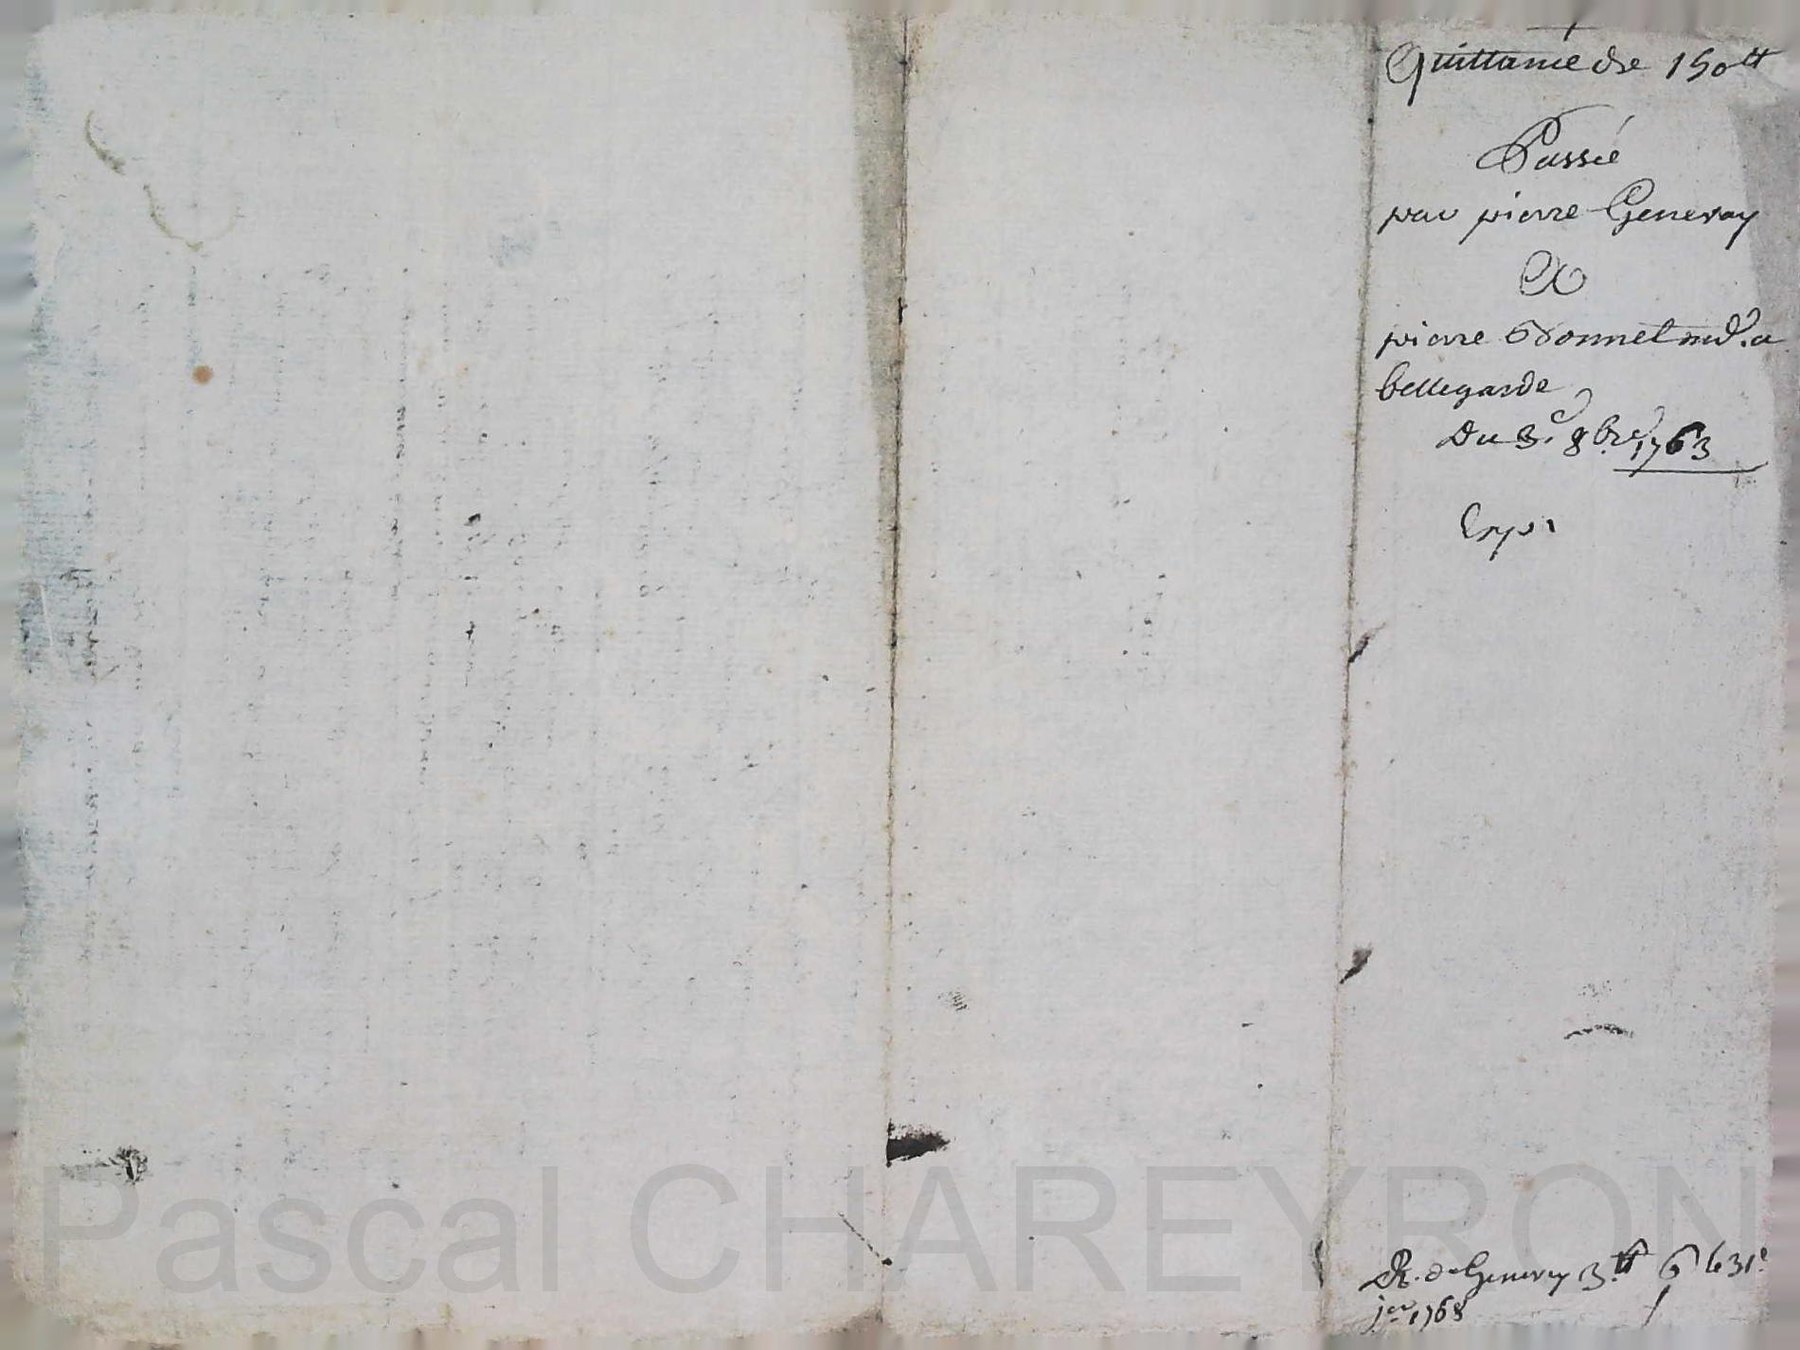 Quittance de 150 ₶
Passée
par pierre Genevay
A
pierre Odonnet md. a
bellegarde
Du 3e. 8bre 1763
Exp.
R. de Genevay 3 ₶ le 31e.
jer 1768
Pascal CHAREYRON